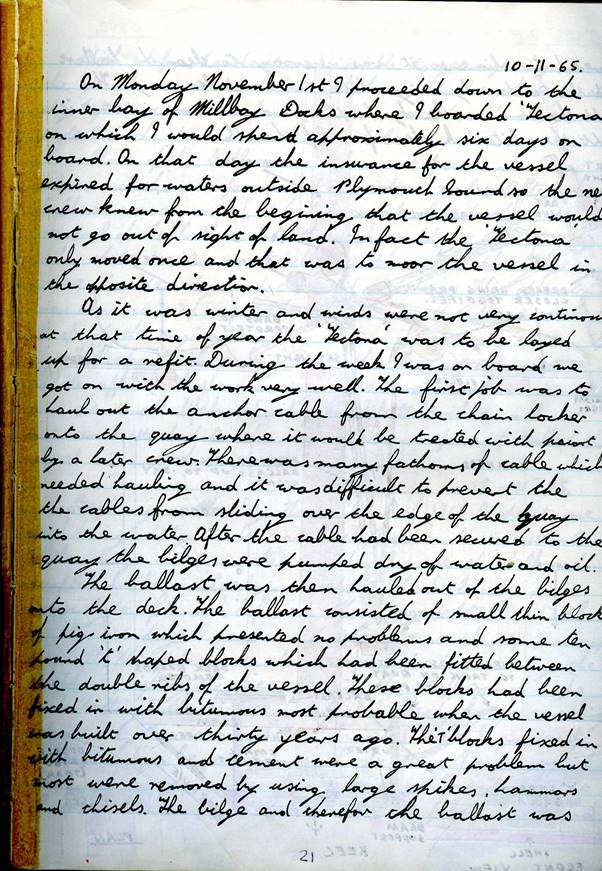 10-11-65.
On Monday November 1st I proceeded down to the
inner bay of Millbay Docks where I boarded 'Tectona
on which I would spend approximately six days on
board. On that day the insurance for the vessel
expired for waters outside Plymouth Sound so the ne
crew knew from the begining that the vessel would
not go out of sight of land. In fact the 'Tectona'
only moved once and that was to moor the vessel in
the opposite direction.
As it was winter and winds were not very continou
at that time of year the 'Tectona' was to be layed
up for a refit. During the week I was on board we
got on with the work very well. The first job was to
haul out the anchor cable from the chain locker
onto the quay where it would be treated with paint
by a later crew. There was many fathoms of cable which
needed hauling and it was difficult to prevent the
the cables from sliding over the edge of the quay
into the water. After the cable had been secured to the
quay the bilges were pumped dry of water and oil.
The ballast was then hauled out of the bilges
onto the deck. The ballast consisted of small thin block
of pig-iron which presented no problems and some ten
pound 't' shaped blocks which had been fitted between
the double ribs of the vessel. These blocks had been
fixed in with bitumous most probable when the vessel
was built over thirty years ago. The 'T' blocks fixed in
with bitumous and cement were a great problem but
most were removed by using large spikes, hammars
and chisels. The bilge and therefor the ballast was
21